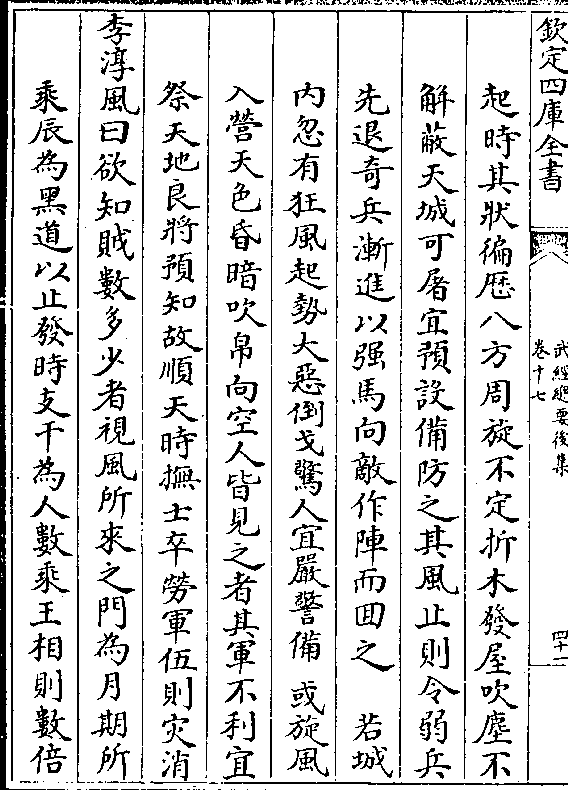 欽定四庫全書
武經總要後集
卷十七
四十一
起時其狀徧厯八方周旋不定折木發屋吹塵不
解蔽天城可屠宜預設備防之其風止則令弱兵
先退竒兵漸進以强馬向敵作陣而囬之 若城
内忽有狂風起勢大惡倒戈驚人宜嚴警備 或旋風
入營天色昏暗吹帛向空人皆見之者其軍不利宜
祭天地良將預知故順天時撫士卒勞軍伍則灾消
李淳風曰欲知賊數多少者視風所來之門為月期所
乘辰為黑道以止發時支干為人數乘王相則數倍